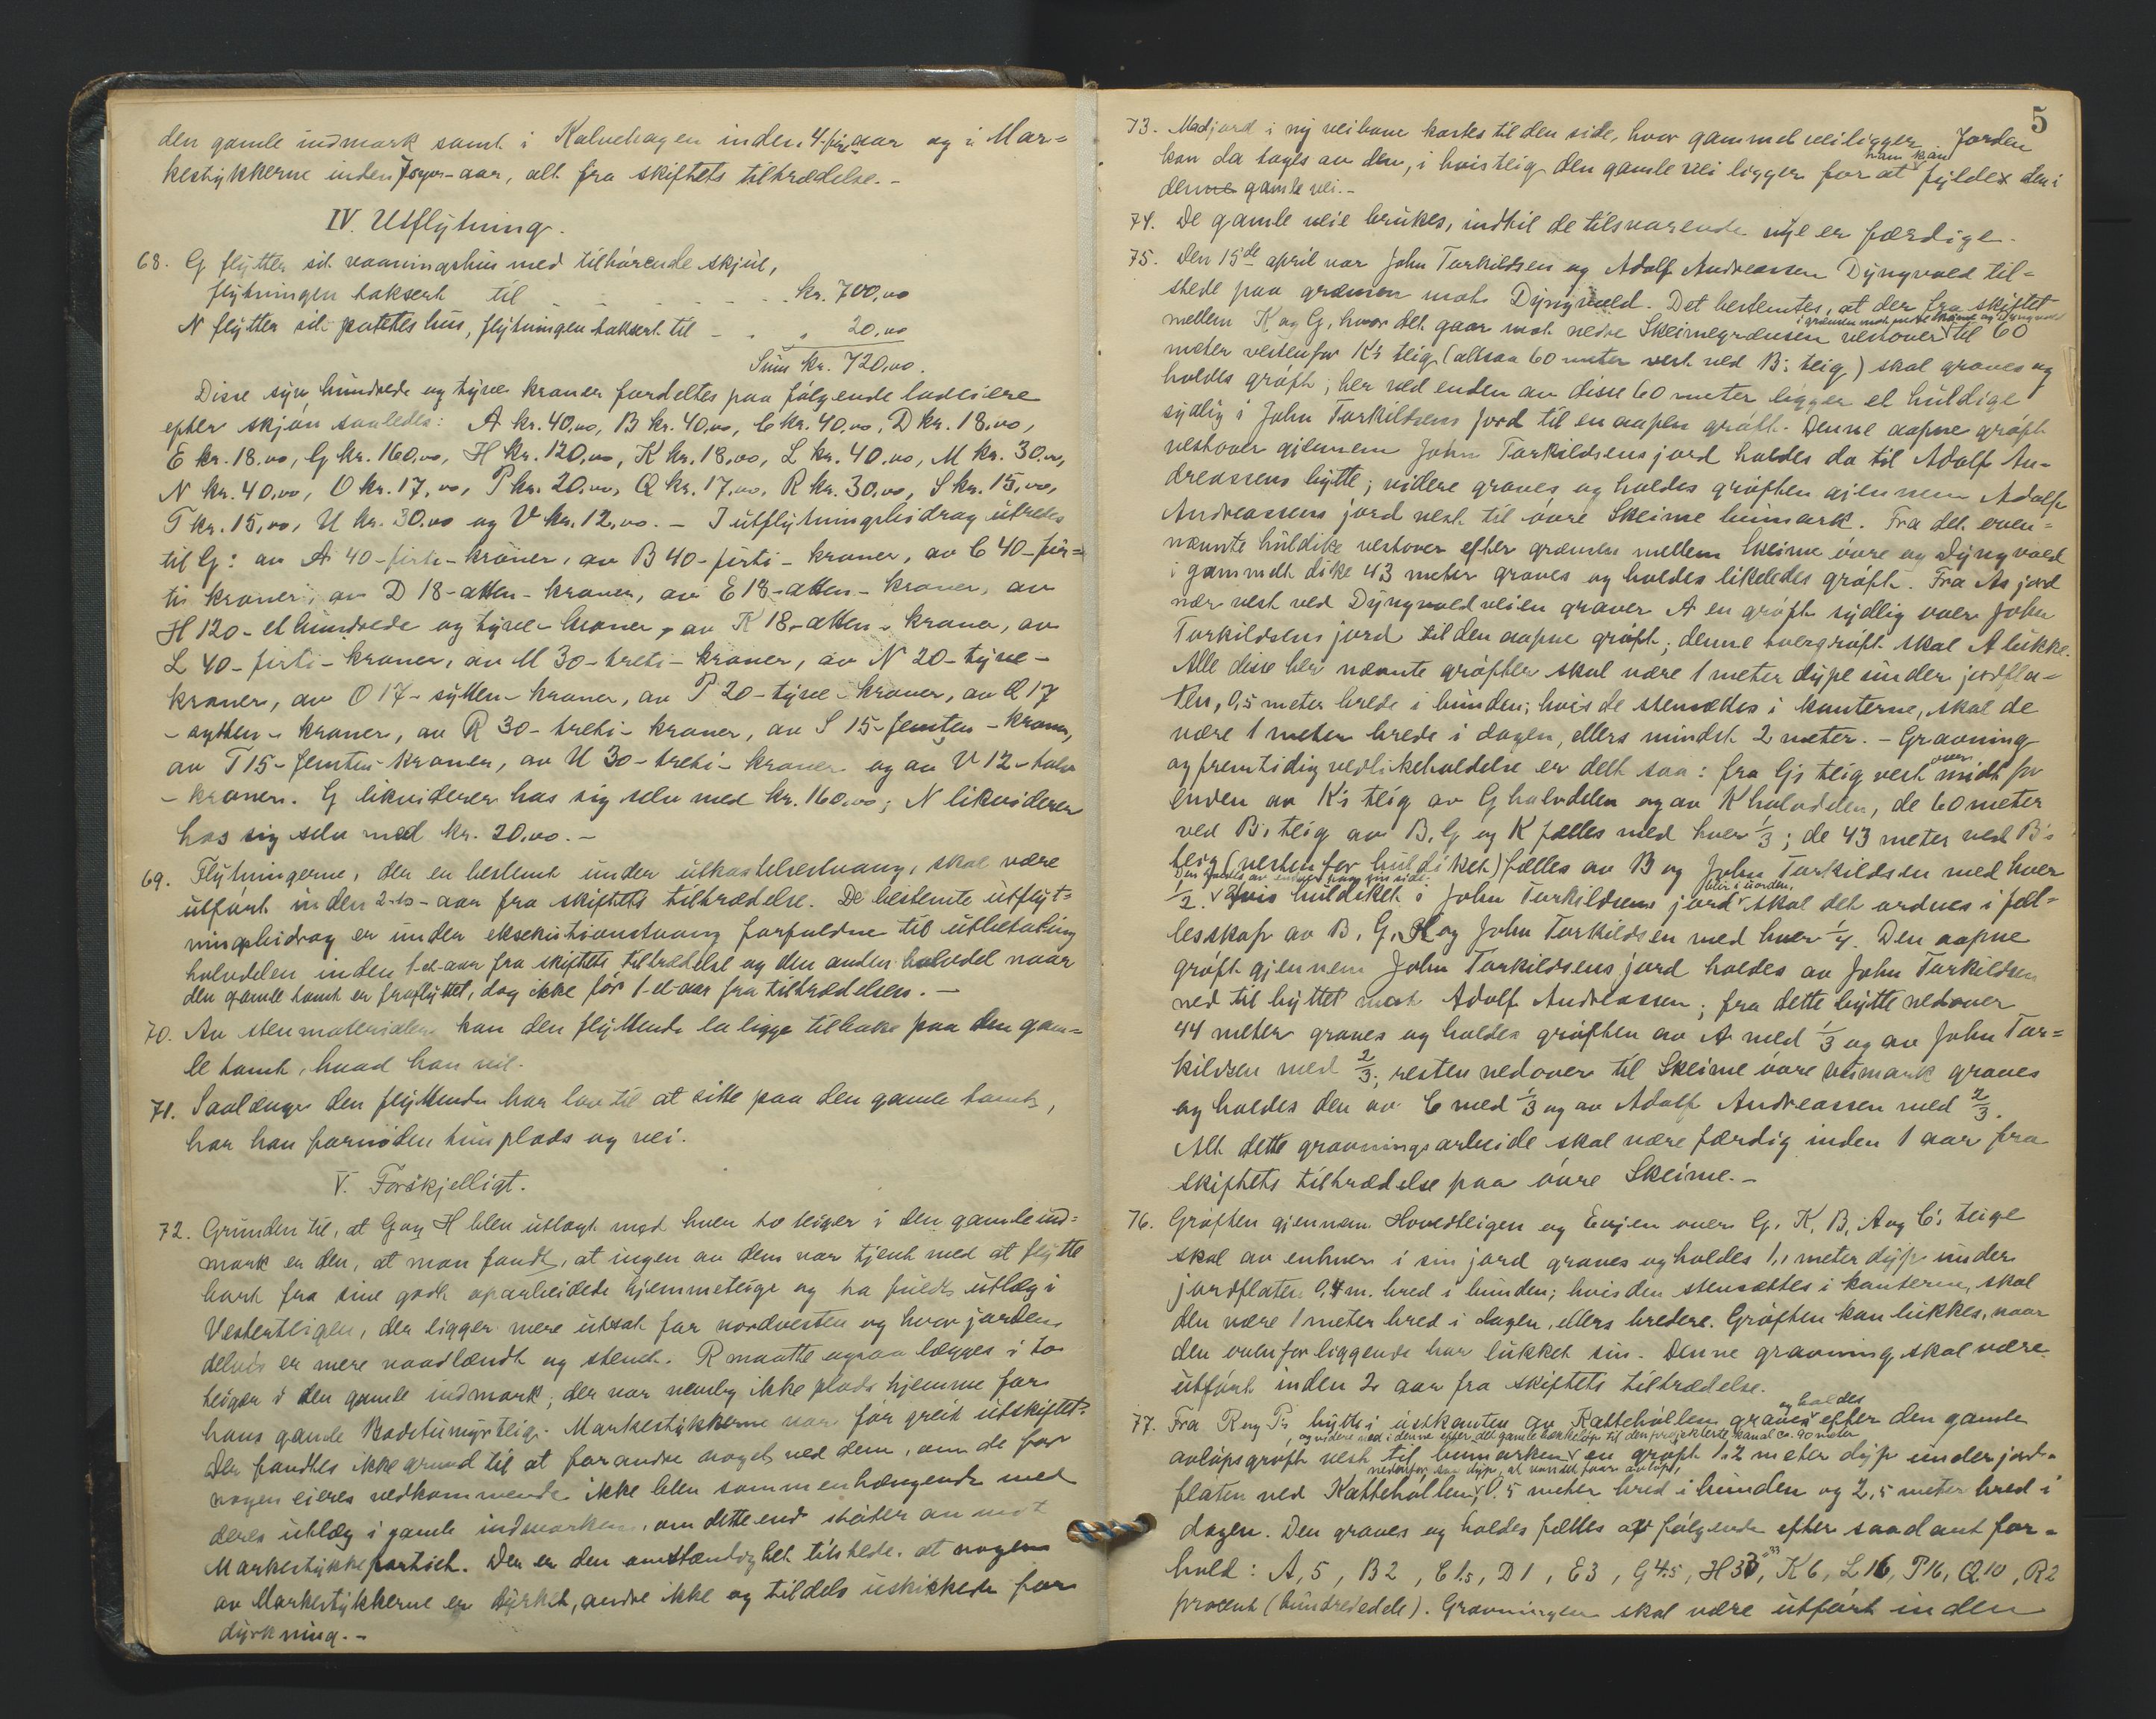 den gamle indmark samt i Kalvehagen inden 4-fire aar og i Mar=
kestykkerne inden 7 syv-aar, alt fra skiftets tiltrædelse.-
IV. Utflytning.
68. G flytter sit vaaningshus med tilhørende skjul,
flytningen taksert til - - - - - kr. 700,00
N flytter sit potetes hus, flytningen taksert til - - " 20,00
Sum kr. 720,00.
Disse syv hundrede og tyve kroner fordeltes paa følgende lodeiere
efter skjøn saaledes: A kr. 40,00, B kr. 40,00, C kr. 40,00, D kr. 18,00,
E kr. 18,00, G kr. 160,00, H kr. 120,00, K kr. 18,00, L kr. 40,00, M kr. 30,00,
N kr. 40,00, O kr. 17,00, P kr. 20,00, Q kr. 17,00, R kr. 30,00, S kr. 15,00,
T kr. 15,00, U kr. 30,00 og V kr. 12,00. - I utflytningsbidrag utredes
til G: av A 40-firti-kroner, av B 40-firti-kroner, av C 40-fir=
ti kroner, av D 18-atten-kroner, av E 18-atten-kroner, av
H 120-et hundrede og tyve-kroner, av K 18-atten-kroner, av
L 40-firti-kroner, av M 30-treti-kroner, av N 20-tyve-
kroner, av O 17-sytten-kroner, av P 20-tyve-kroner, av Q 17
-sytten-kroner, av R 30-treti-kroner, av S 15-femten-kroner,
av T 15-femten-kroner, av U 30-treti-kroner og av V 12-tolv
-kroner. G likviderer hos sig selv med kr. 160,00; N likviderer
hos sig selv med kr. 20,00.-
69. Flytningerne, der er bestemt under utkastelsestvang, skal være
utført inden 2-to-aar fra skiftets tiltrædelse. De bestemte utflyt=
ningsbidrag er under eksekutionstvang forfaldne til utbetaling
halvdelen inden 1-et-aar fra skiftets tiltrædelse og den anden halvdel naar
den gamle tomt er fraflyttet, dog ikke før 1-et-aar fra tiltrædelsen.-
70. Av stenmaterialene kan den flyttende la ligge tilbake paa den gam=
le tomt, hvad han vil.
71. Saalænge den flyttende har lov til at sitte paa den gamle tomt,
har han fornøden tunplads og vei.
V. Forskjelligt.
72. Grunden til, at G og H blev utlagt med hver to teiger i den gamle ind=
mark er den, at man fandt, at ingen av dem var tjent med at flytte
bort fra sine godt oparbeidede hjemmeteige og ha fuldt utlæg i
Vesterteigen, der ligger mere utsat for nordvesten og hvor jorden
delvis er mere vaadlændt og stenet. R maatte ogsaa lægges i to
teiger i den gamle indmark; der var nemlig ikke plads hjemme for
hans gamle Bodetumyrteig. Markestykkerne var før greit utskiftet.
Der fandtes ikke grund til at forandre noget ved dem, om de for
nogen eieres vedkommende ikke blev sammenhængende med
deres utlæg i gamle indmarken, om dette end støter an mot
Markestykkepartiet. Der er den omstændighet tilstede, at nogen
av Markestykkerne er dyrket, andre ikke og tildels uskikkede for
dyrkning.-
5
73. Madjord i ny veibane kastes til den side, hvor gammel vei ligger. Jorden
kan da tages av den, i hvis teig den gamle vei ligger for at han kan fylde den i
denne gamle vei.-
74. De gamle veie brukes, indtil de tilsvarende nye er færdige.
75. Den 15de april var John Torkildsen og Adolf Andreassen Dyngvold til=
stede paa grænsen mot Dyngvold. Det bestemtes, at der fra skiftet
mellem K og G, hvor det gaar mot nedre Skeimegrænsen vestover i grænsen mot nedre Skeime og Dyngvold til 60
meter vestenfor K's teig (altsaa 60 meter vest ved B's teig) skal graves og
holdes grøft; her ved enden av disse 60 meter ligger et huldige
sydlig i John Torkildsens jord til en aapen grøft. Denne aapne grøft
vestover gjennem John Torkildsens jord holdes da til Adolf An=
dreassens bytte; videre graves og holdes grøften gjennem Adolf
Andreassens jord vest til øvre Skeime bumark. Fra det oven=
nævnte huldike vestover efter grænsen mellem Skeime øvre og Dyngvold
i gammelt dike 43 meter graves og holdes likeledes grøft. Fra As jord
nær vest ved Dyngvoldveien graver A en grøft sydlig over John
Torkildsens jord til den aapne grøft; denne tvergrøft skal A lukke.
Alle disse her nævnte grøfter skal være 1 meter dype under jordfla=
ten, 0,5 meter brede i bunden; hvis de stensættes i kanterne, skal de
være 1 meter brede i dagen, ellers mindst 2 meter. - Gravning
og fremtidig vedlikeholdelse er delt saa: fra G's teig vestover midt for
enden av K's teig av G halvdelen og av K halvdelen, de 60 meter
ved B's teig av B, G og K fælles med hver 1/3; de 43 meter ved B's
teig (vestenfor huldiket) fælles av B og John Torkildsen med hver
1/2. Hvis huldiket i John Torkildsens jord blir i uorden, skal det ordnes i fæl=
lesskap av B, G, K og John Torkildsen med hver 1/4. Den aapne
grøft gjennem John Torkildsens jord holdes av John Torkildsen
ned til byttet mot Adolf Andreassen; fra dette bytte nedover
44 meter graves og holdes grøften av A med 1/3 og av John Tor=
kildsen med 2/3; resten nedover til Skeime øvre bumark graves
og holdes den av C med 1/3 og av Adolf Andreassen med 2/3.
Alt dette gravningsarbeide skal være færdig inden 1 aar fra
skiftets tiltrædelse paa øvre Skeime.-
76. Grøften gjennem Hovedteigen og Evjen over G, K, B, A og C's teige
skal av enhver i sin jord graves og holdes 1,1 meter dyp under
jordflaten 0,4 m. bred i bunden; hvis den stensættes i kanterne, skal
den være 1 meter bred i dagen, ellers bredere. Grøften kan lukkes, naar
den ovenforliggende har lukket sin. Denne gravning skal være
utført inden 2 aar fra skiftets tiltrædelse.
77. Fra R og P's bytte i østkanten av Kattehøllen graves og holdes efter den gamle
avløpsgrøft vest til bumarken og videre ned i denne efter det gamle bækkeløp til den projekterte kanal ca. 90 meter en grøft 1,2 meter dyp under jord-
flaten ved Kattehøllen, nedenfor saa dyp, at vandet faar avløp, 0,5 meter bred i bunden og 2,5 meter bred i
dagen. Den graves og holdes fælles av følgende efter saadant for=
hold: A,5, B2, C1,5, D1, E3, G4,5, H33, K6, L16, P16, Q10, R2
procent (hundrededele). Gravningen skal være utført inden